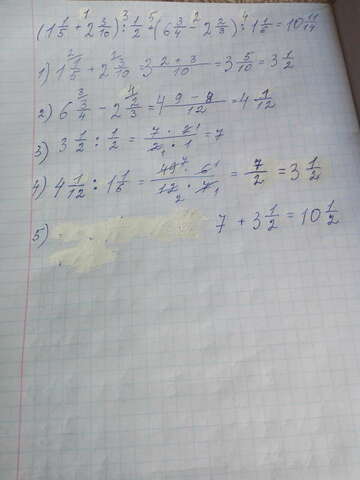 (1 1/5 + 2 3/10) : 1/2 + (6 3/4 - 2 2/3) : 1 1/6 = 10 11/14
1) 1 1/5 + 2 3/10 = 3 (2+3)/10 = 3 5/10 = 3 1/2
2) 6 3/4 - 2 2/3 = 4 (9-8)/12 = 4 1/12
3) 3 1/2 : 1/2 = (7 · 2)/(2 · 1) = 7
4) 4 1/12 : 1 1/6 = (49 · 6)/(12 · 7) = 7/2 = 3 1/2
5) 7 + 3 1/2 = 10 1/2